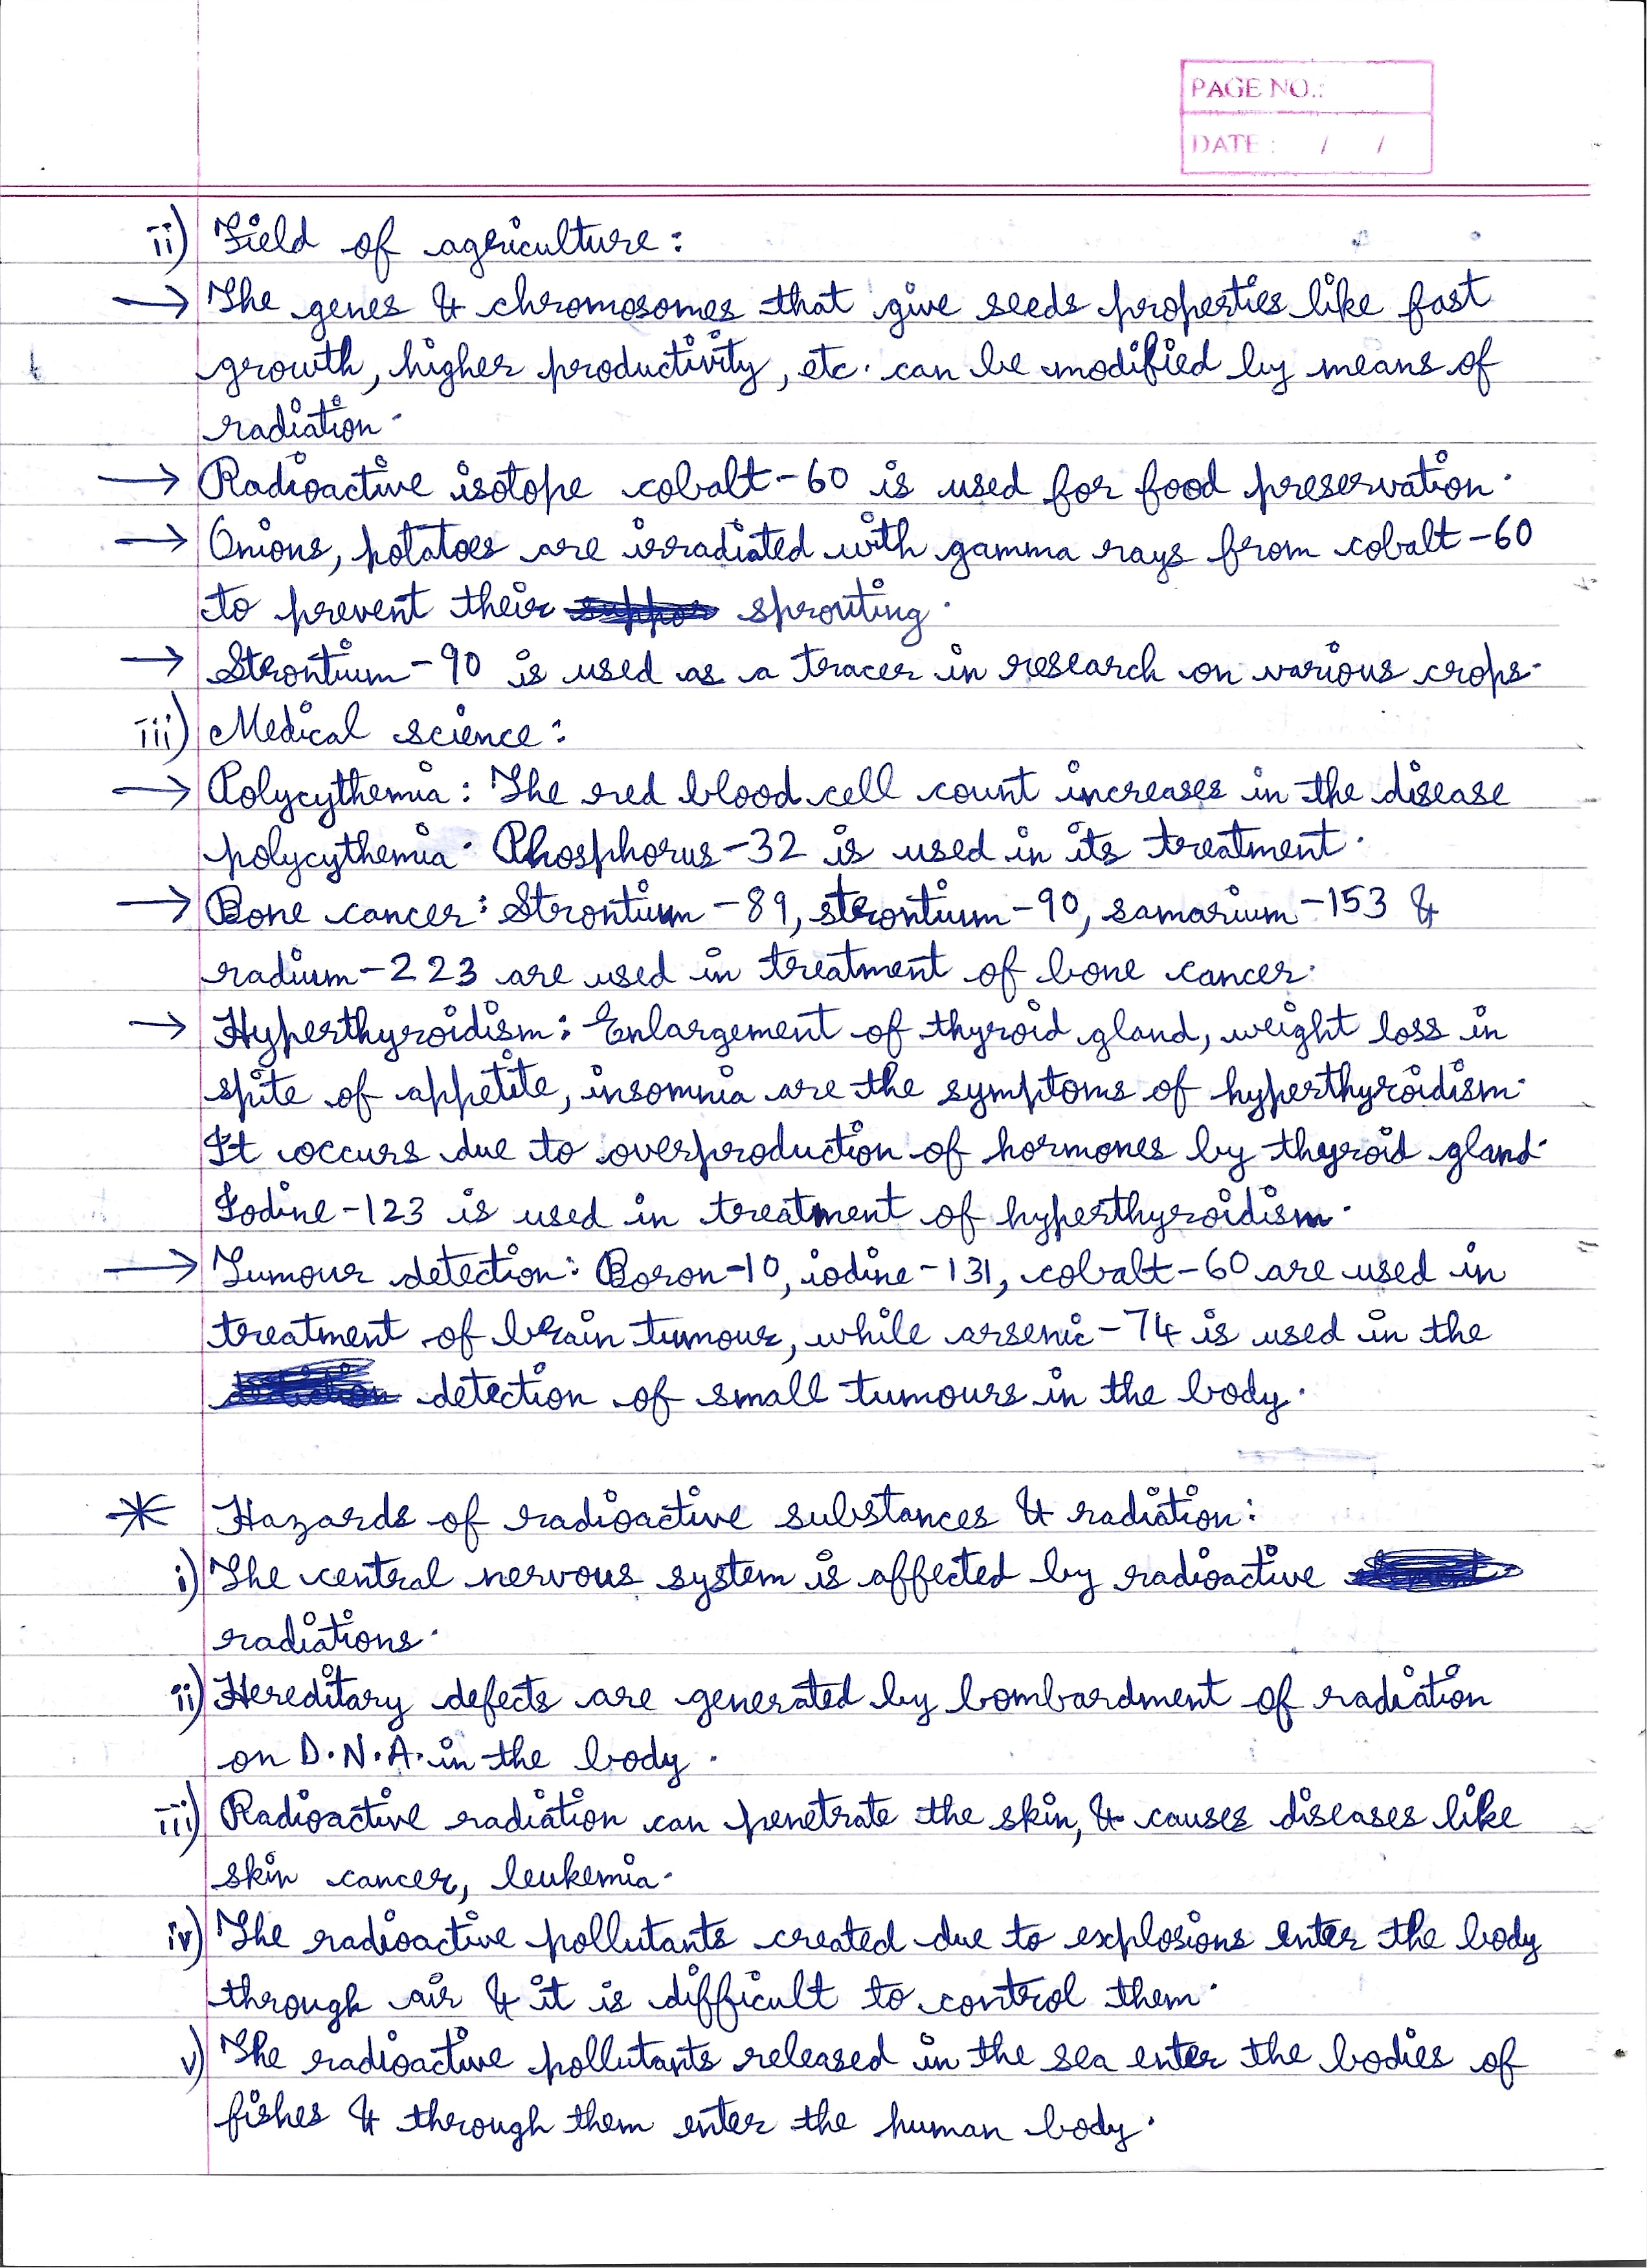 PAGE NO.:
DATE : / /
ii) Field of agriculture:
→ The genes & chromosomes that give seeds properties like fast
growth, higher productivity, etc. can be modified by means of
radiation.
→ Radioactive isotope cobalt-60 is used for food preservation.
→ Onions, potatoes are irradiated with gamma rays from cobalt-60
to prevent their sprouting.
→ Strontium-90 is used as a tracer in research on various crops.
iii) Medical science:
→ Polycythemia: The red blood cell count increases in the disease
polycythemia. Phosphorus-32 is used in its treatment.
→ Bone cancer: Strontium-89, strontium-90, samarium-153 &
radium-223 are used in treatment of bone cancer.
→ Hyperthyroidism: Enlargement of thyroid gland, weight loss in
spite of appetite, insomnia are the symptoms of hyperthyroidism.
It occurs due to overproduction of hormones by thyroid gland.
Iodine-123 is used in treatment of hyperthyroidism.
→ Tumour detection: Boron-10, iodine-131, cobalt-60 are used in
treatment of brain tumour, while arsenic-74 is used in the
detection of small tumours in the body.
* Hazards of radioactive substances & radiation:
i) The central nervous system is affected by radioactive
radiations.
ii) Hereditary defects are generated by bombardment of radiation
on D.N.A. in the body.
iii) Radioactive radiation can penetrate the skin, & causes diseases like
skin cancer, leukemia.
iv) The radioactive pollutants created due to explosions enter the body
through air & it is difficult to control them.
v) The radioactive pollutants released in the sea enter the bodies of
fishes & through them enter the human body.